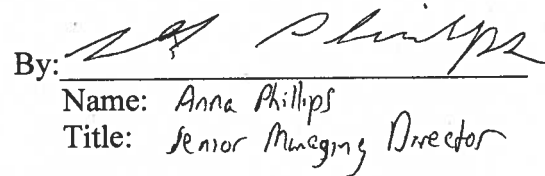 By:
Name: Anna Phillips
Title: Senior Managing Director